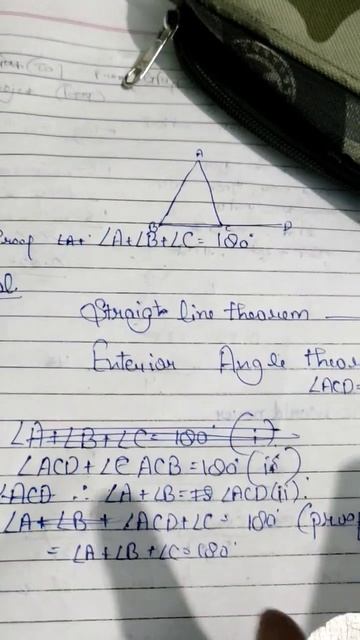 A
B C D
Proof ∠A+ ∠A+∠B+∠C= 180°
Straight line theorem —
Exterior Angle theor
∠ACD=
∠A+∠B+∠C= 180° (i)
∠ACD+∠C ACB=180° (ii)
∠ACD ∴ ∠A+∠B= ∠ACD(ii):
∠A+∠B+ ∠ACD+∠C= 180° (proof
= ∠A+∠B+∠C=180°